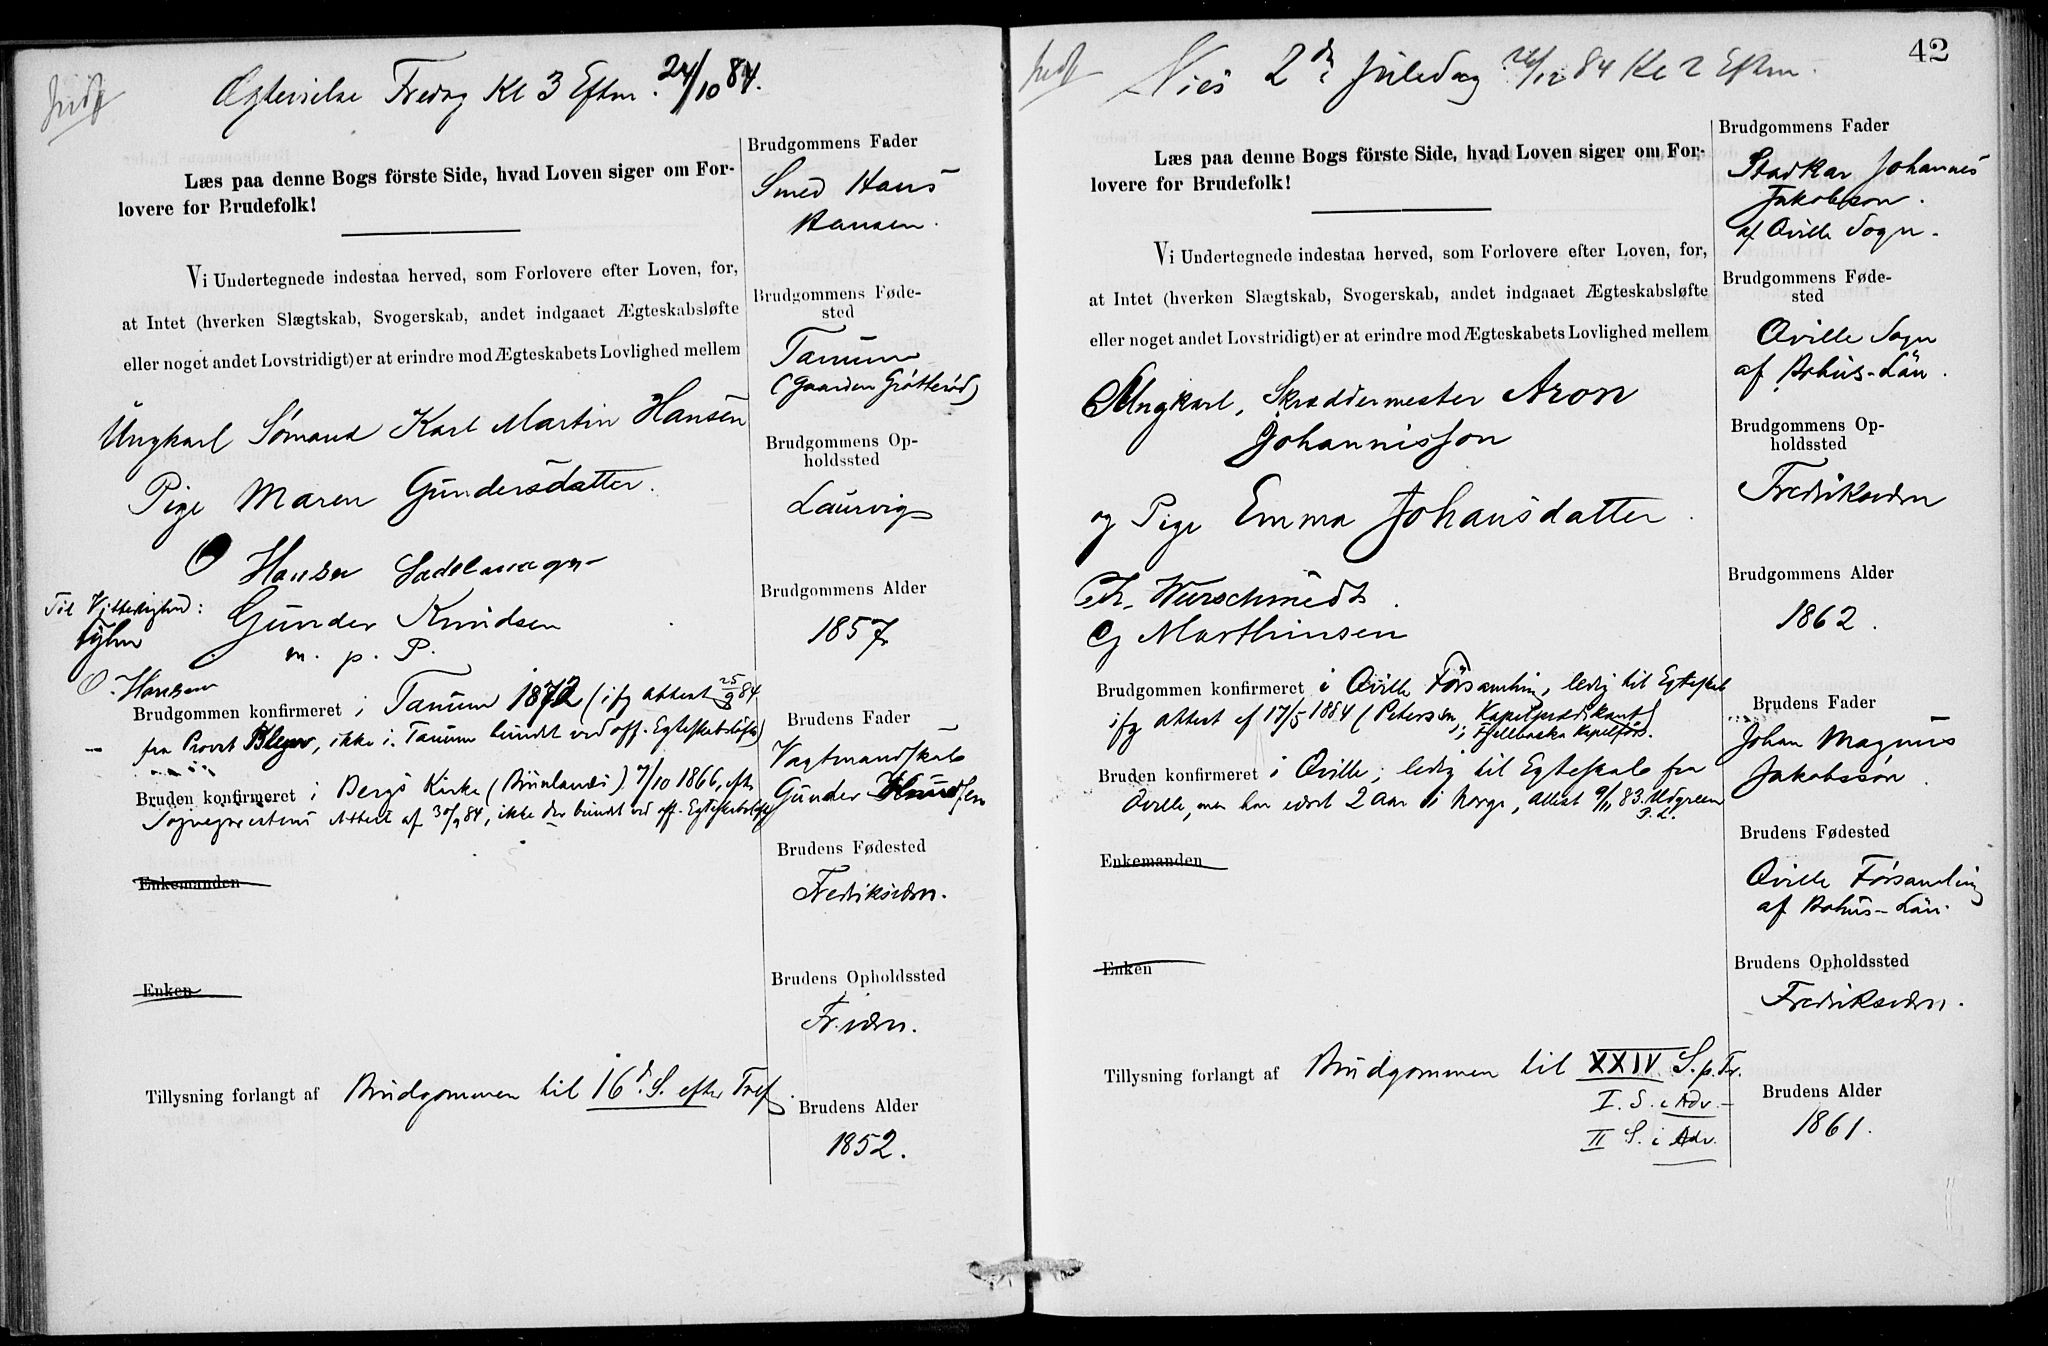 indf
Ægtevielse Fredag Kl 3 Eftm. 24/10 84.
Læs paa denne Bogs förste Side, hvad Loven siger om For-
lovere for Brudefolk!
Vi Undertegnede indestaa herved, som Forlovere efter Loven, for,
at Intet (hverken Slægtskab, Svogerskab, andet indgaaet Ægteskabsløfte
eller noget andet Lovstridigt) er at erindre mod Ægteskabets Lovlighed mellem
Ungkarl Sømand Karl Martin Hansen
Pige Maren Gundersdatter.
O Hansen Sadelmager
Til Vitterlighed: Gunder Knudsen
m. p. P.
O. Hansen
Brudgommen konfirmeret i Tanum 1872 (ifg Attest 25/9 84
fra Provst Bleyer, ikke i Tanum bundet ved off. Egteskabsløfte)
Bruden konfirmeret i Bergs Kirke (Brunlanäs) 7/10 1866, efter
Sognepræstens Attest af 30/9 84, ikke der bundet ved off. Egteskabsløfte
Enkemanden
Enken
Tillysning forlangt af Brudgommen til 16d. S. efter Tref.
Brudgommens Fader
Smed Hans
Hansen.
Brudgommens Føde-
sted
Tanum
(Gaarden Grötteröd)
Brudgommens Op-
holdssted
Laurvig
Brudgommens Alder
1857
Brudens Fader
Vagtmandskab
Gunder Knudsen
Brudens Fødested
Fredriksværn.
Brudens Opholdssted
Fr.værn.
Brudens Alder
1852.
42
indf
Vies 2den Juledag 26/12 84 Kl 2 Eftm.
Læs paa denne Bogs förste Side, hvad Loven siger om For-
lovere for Brudefolk!
Vi Undertegnede indestaa herved, som Forlovere efter Loven, for,
at Intet (hverken Slægtskab, Svogerskab, andet indgaaet Ægteskabsløfte
eller noget andet Lovstridigt) er at erindre mod Ægteskabets Lovlighed mellem
Ungkarl, Skræddermester Aron
Johannisson
og Pige Emma Johansdatter.
Chr. Wurschmidt.
Cg Marthinsen
Brudgommen konfirmeret i Qville Församling, ledig til Egteskab
ifg Attest af 17/5 1884 (Petersson, Kapelprædikant
i Fjellbacka Kapelförs.
Bruden konfirmeret i Qville; ledig til Egteskab fra
Qville, men har været 2 Aar i Norge, Attest 9/11 83. Udgreen
P. L.
Enkemanden
Enken
Tillysning forlangt af Brudgommen til XXIV S. p. Tr.
I. S. i Adv. –
II S. i Adv.
Brudgommens Fader
Stadkar Johannes
Jakobsson.
af Qville Sogn.
Brudgommens Føde-
sted
Qville Sogn
af Bohus-Län.
Brudgommens Op-
holdssted
Fredriksværn
Brudgommens Alder
1862.
Brudens Fader
Johan Magnus
Jakobsson.
Brudens Fødested
Qville Församling
af Bohus-Län.
Brudens Opholdssted
Fredriksværn.
Brudens Alder
1861.